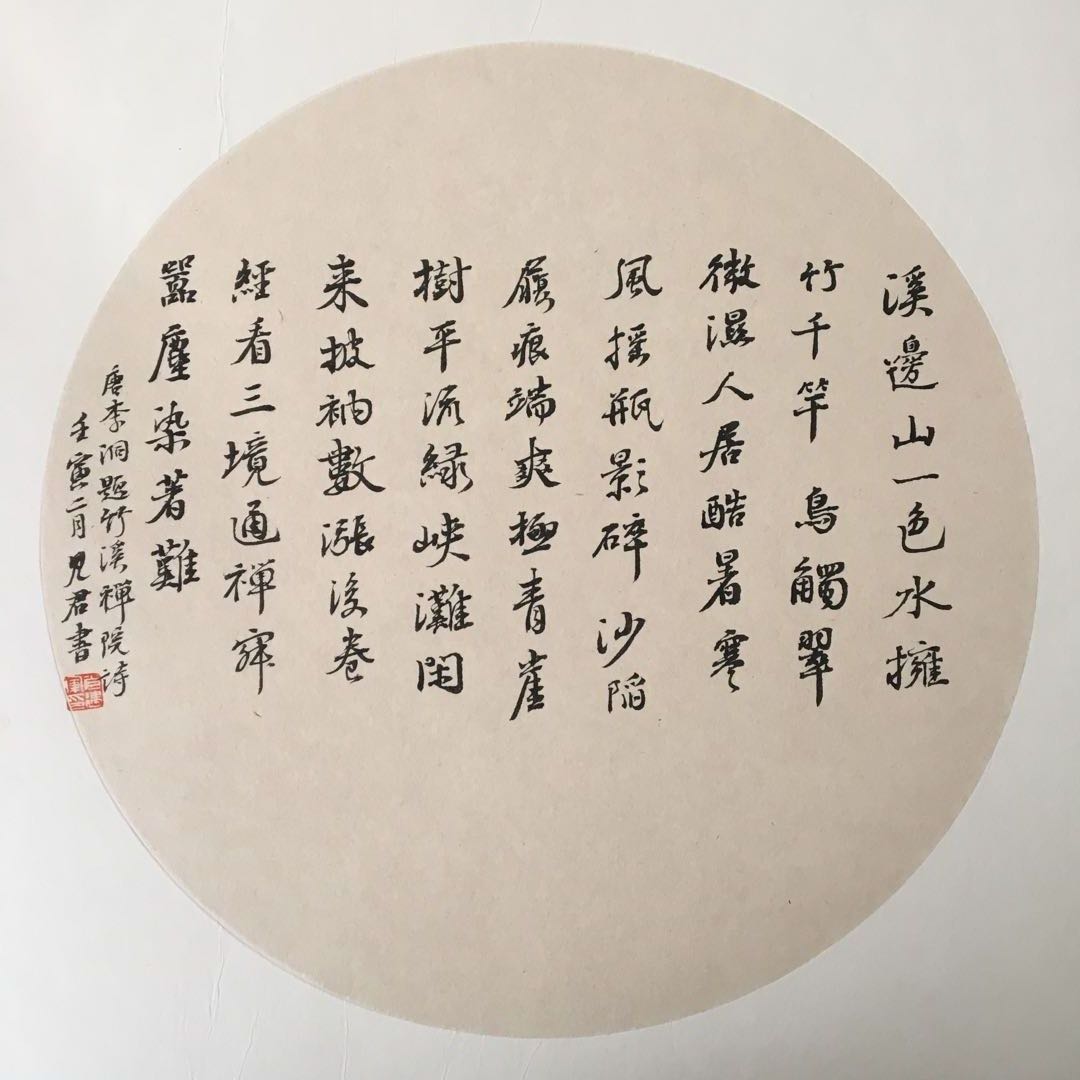 溪邊山一色水擁
竹千竿鳥觸翠
微濕人居酷暑寒
風摇瓶影碎沙陷
屐痕端爽極青崖
樹平流緑峽灘閑
来披衲數漲後卷
經看三境通禪寂
囂塵染著難
唐李洞題竹溪禪院詩
壬寅二月見君書